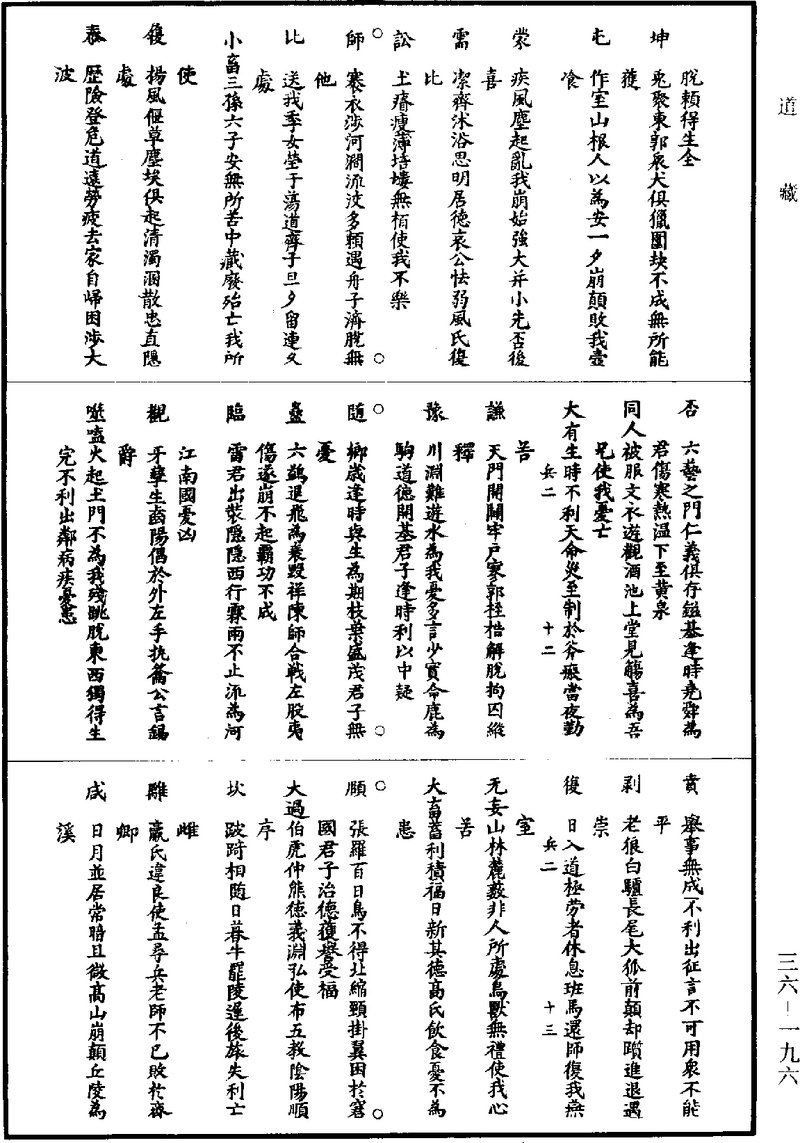 道藏
脫賴得生全
坤 兎聚東郭衆犬俱獵圍缺不成無所能
獲
屯 作室山根人以為安一夕崩顛敗我壺
飡
蒙 疾風塵起亂我崩始強大并小先否後
喜
需 潔齊沐浴思明居德哀公怯弱風氏復
比
訟 土瘠瘦薄培塿無栢使我不樂
師 褰衣涉河澗流浚多賴遇舟子濟脫無
他
比 送我季女至于蕩道齊子旦夕留連久
處
小畜 三孫六子安無所苦中藏廢殆亡我所
使
履 揚風偃草塵埃俱起清濁溷散忠直隱
處
泰 歷險登危道遠勞疲去家自歸困涉大
波
否 六藝之門仁義俱存鎡基逢時堯舜為
君傷寒熱溫下至黃泉
同人 被服文衣遊觀酒池上堂見觴喜為吾
兄使我憂亡
大有 生時不利天命災至制於斧癜當夜勤
苦
兵二 十二
謙 天門開闢牢戶寥郭桎梏解脫拘囚縱
釋
豫 川淵難遊水為我憂多言少實命鹿為
駒道德開基君子逢時利以中疑
隨 鄉歲逢時與生為期枝葉盛茂君子無
憂
蠱 六鷁退飛為襄敗祥陳師合戰左股夷
傷遂崩不起霸功不成
臨 雷君出裝隱隱西行霖雨不止流為河
江南國憂凶
觀 牙孽生齒陽倡於外左手執籥公言錫
爵
噬嗑 火起土門不為我殘跳脫東西獨得生
完不利出鄰病疾憂患
賁 舉事無成不利出征言不可用衆不能
平
剥 老狼白驢長尾大狐前顛却躓進退遇
祟
復 日入道極勞者休息班馬還師復我燕
室
兵二 十三
无妄 山林麓藪非人所處鳥獸無禮使我心
苦
大畜 蓄利積福日新其德高氏飲食憂不為
患
頤 張羅百日鳥不得北縮頸掛翼困於窘
國君子治德獲譽受福
大過 伯虎仲熊德義淵弘使布五教陰陽順
序
坎 跛踦相隨日暮牛罷陵遲後旅失利亡
雌
離 嬴氏違良使孟尋兵老師不已敗於齊
卿
咸 日月並居常暗且微高山崩顛丘陵為
溪
三六―一九六